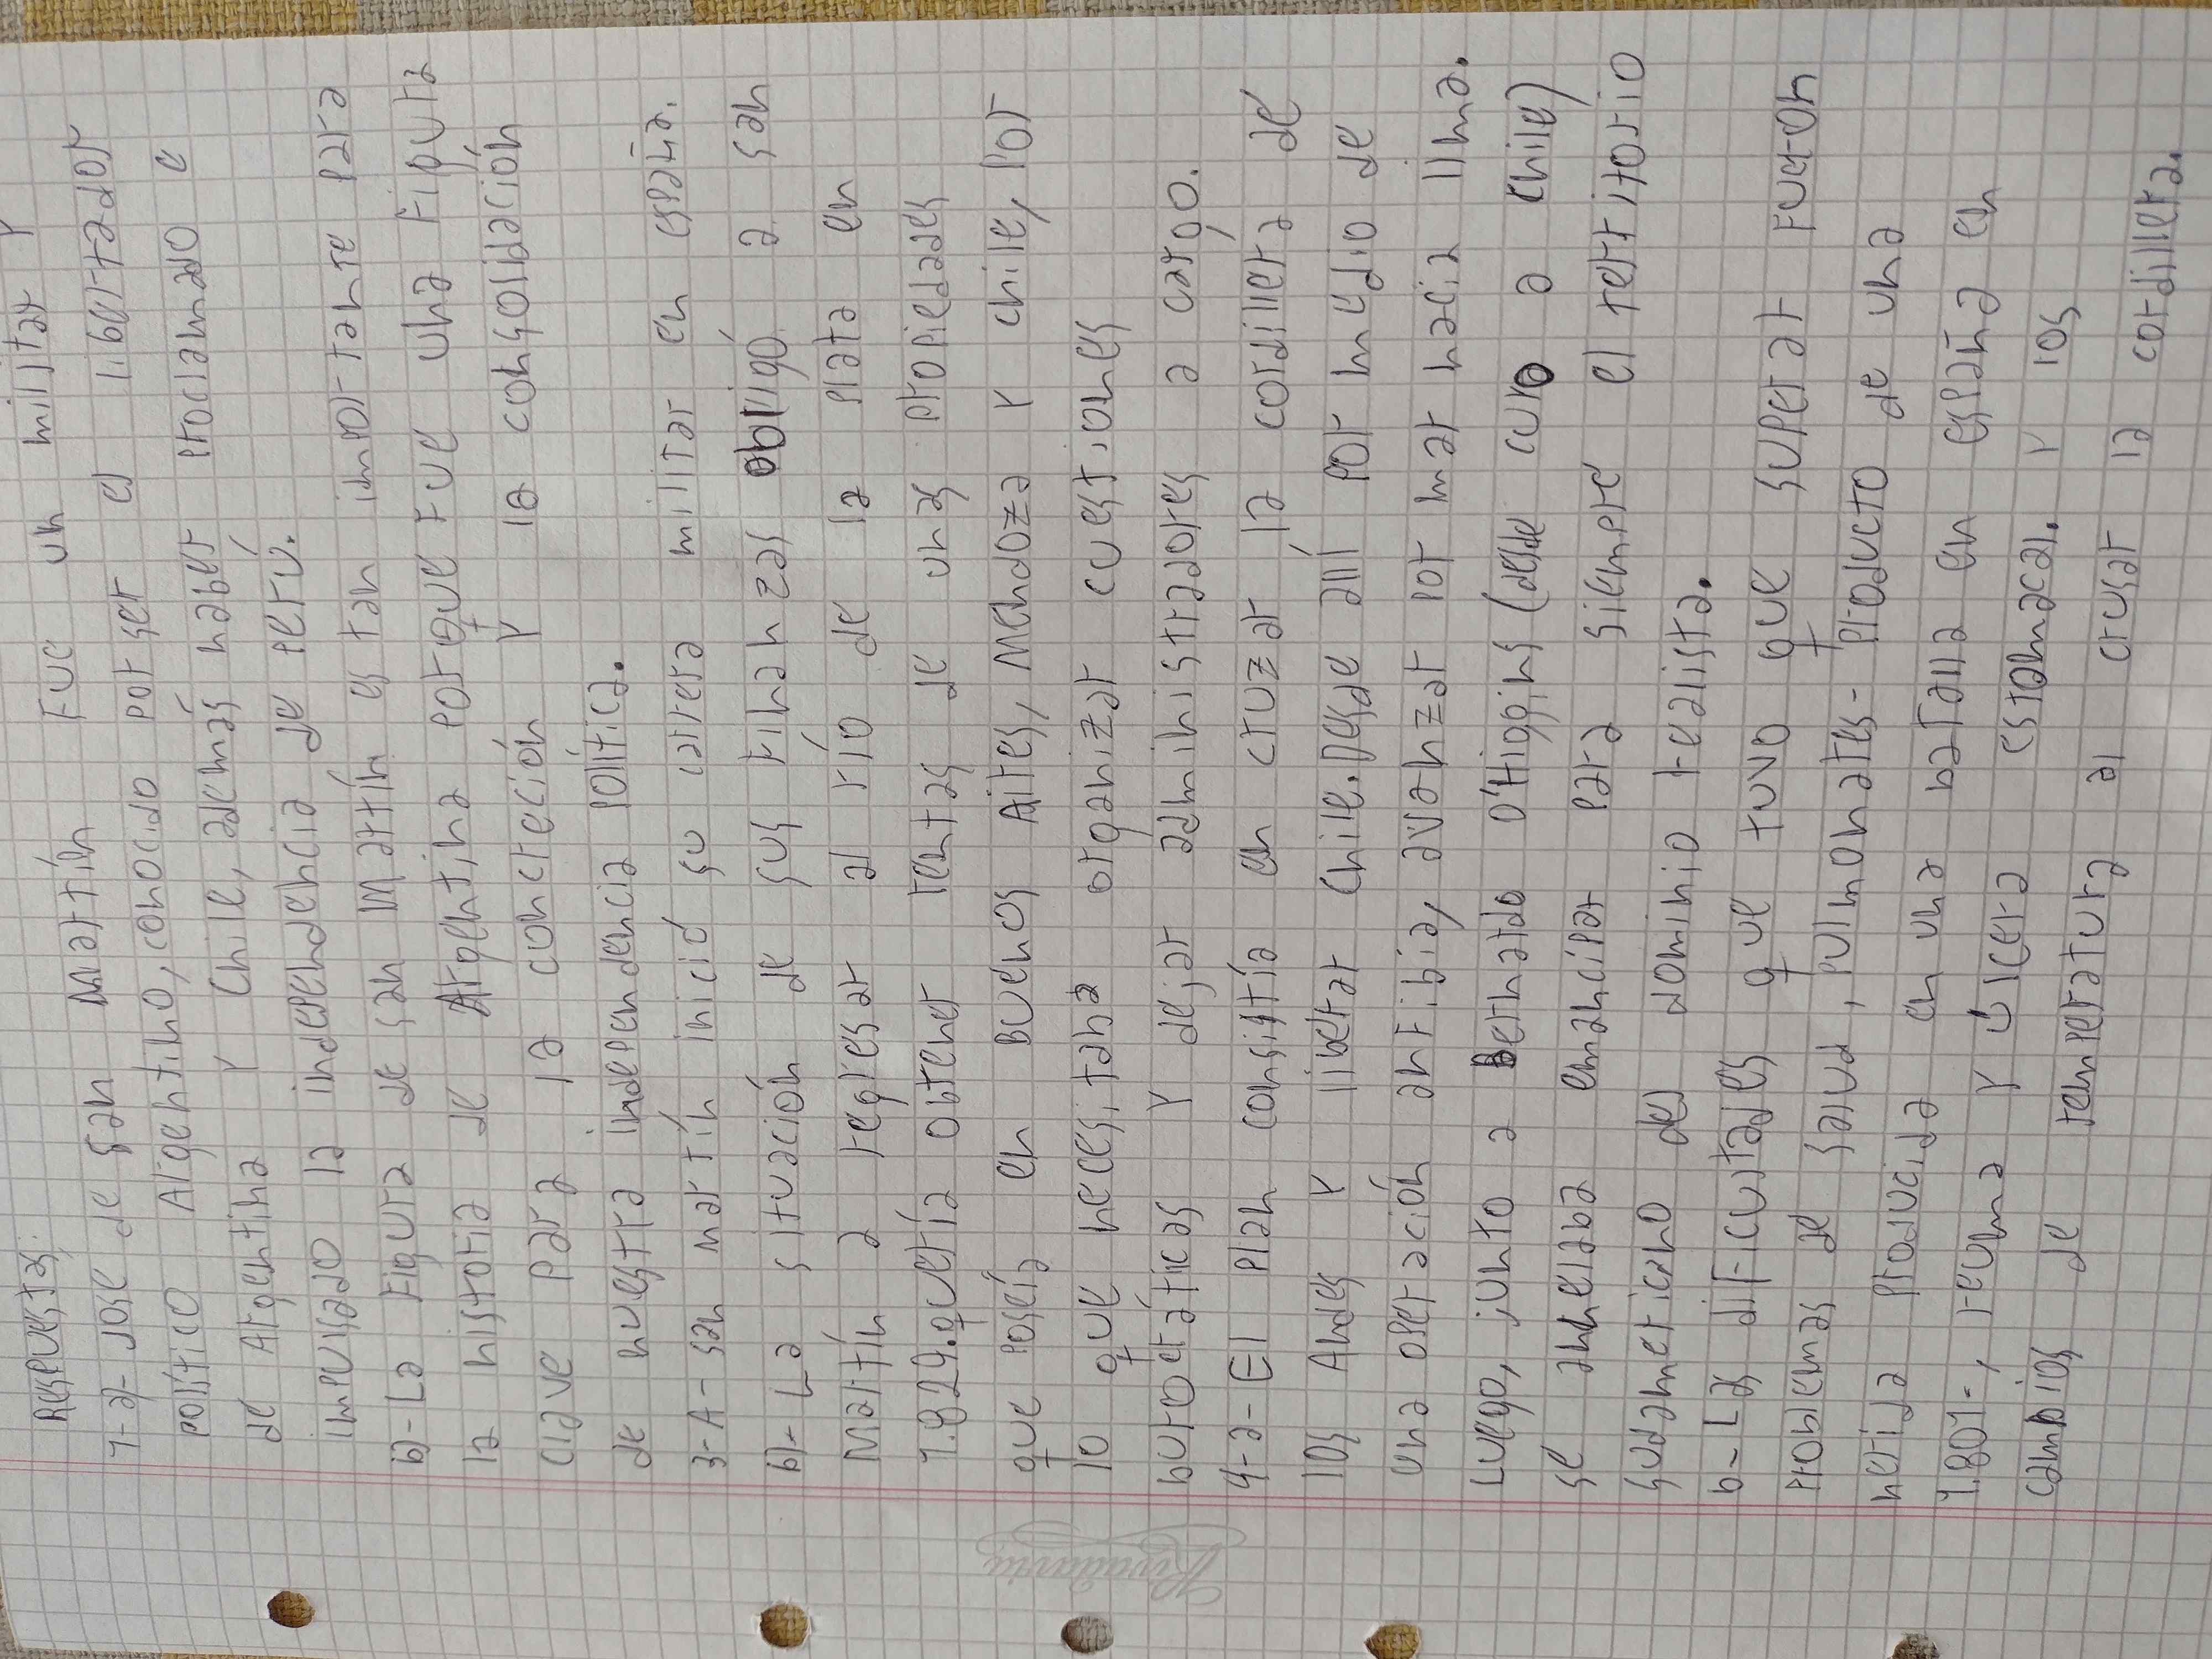 Respuestas:
1-a)- Jose de San Martín Fue un militar y
político Argentino, conocido por ser el libertador
de Argentina y Chile, además haber proclamado e
impulsado la independencia de Perú.
b)-La Figura de San Martín es tan importante para
la historia de Argentina porque Fue una Figura
clave para la concreción y la consolidación
de nuestra independencia política.
3-A- San Martín inició su carrera militar en españa.
b)- La situación de sus Finanzas obligó a San
Martín a regresar al río de la Plata en
1.829. quería obtener rentas de unas propiedades
que poseía en Buenos Aires, Mendoza y Chile, Por
lo que necesitaba organizar cuestiones
burocráticas y dejar administradores a cargo.
4-a- El plan consistía en cruzar la cordillera de
los Andes y libertar Chile. Desde allí por medio de
una operación anfibia, avanzar por mar hacia lima.
Luego, junto a Bernardo O'Higgins (desde cuyo a Chile)
se anhelaba emancipar para siempre el territorio
sudamericano del dominio realista.
b- Las dificultades que tuvo que superar Fueron
Problemas de salud, pulmonares- producto de una
herida producida en una batalla en españa en
1.801-, reuma y úlcera estomacal. y los
cambios de temperatura al crusar la cordillera.
Rivadavia